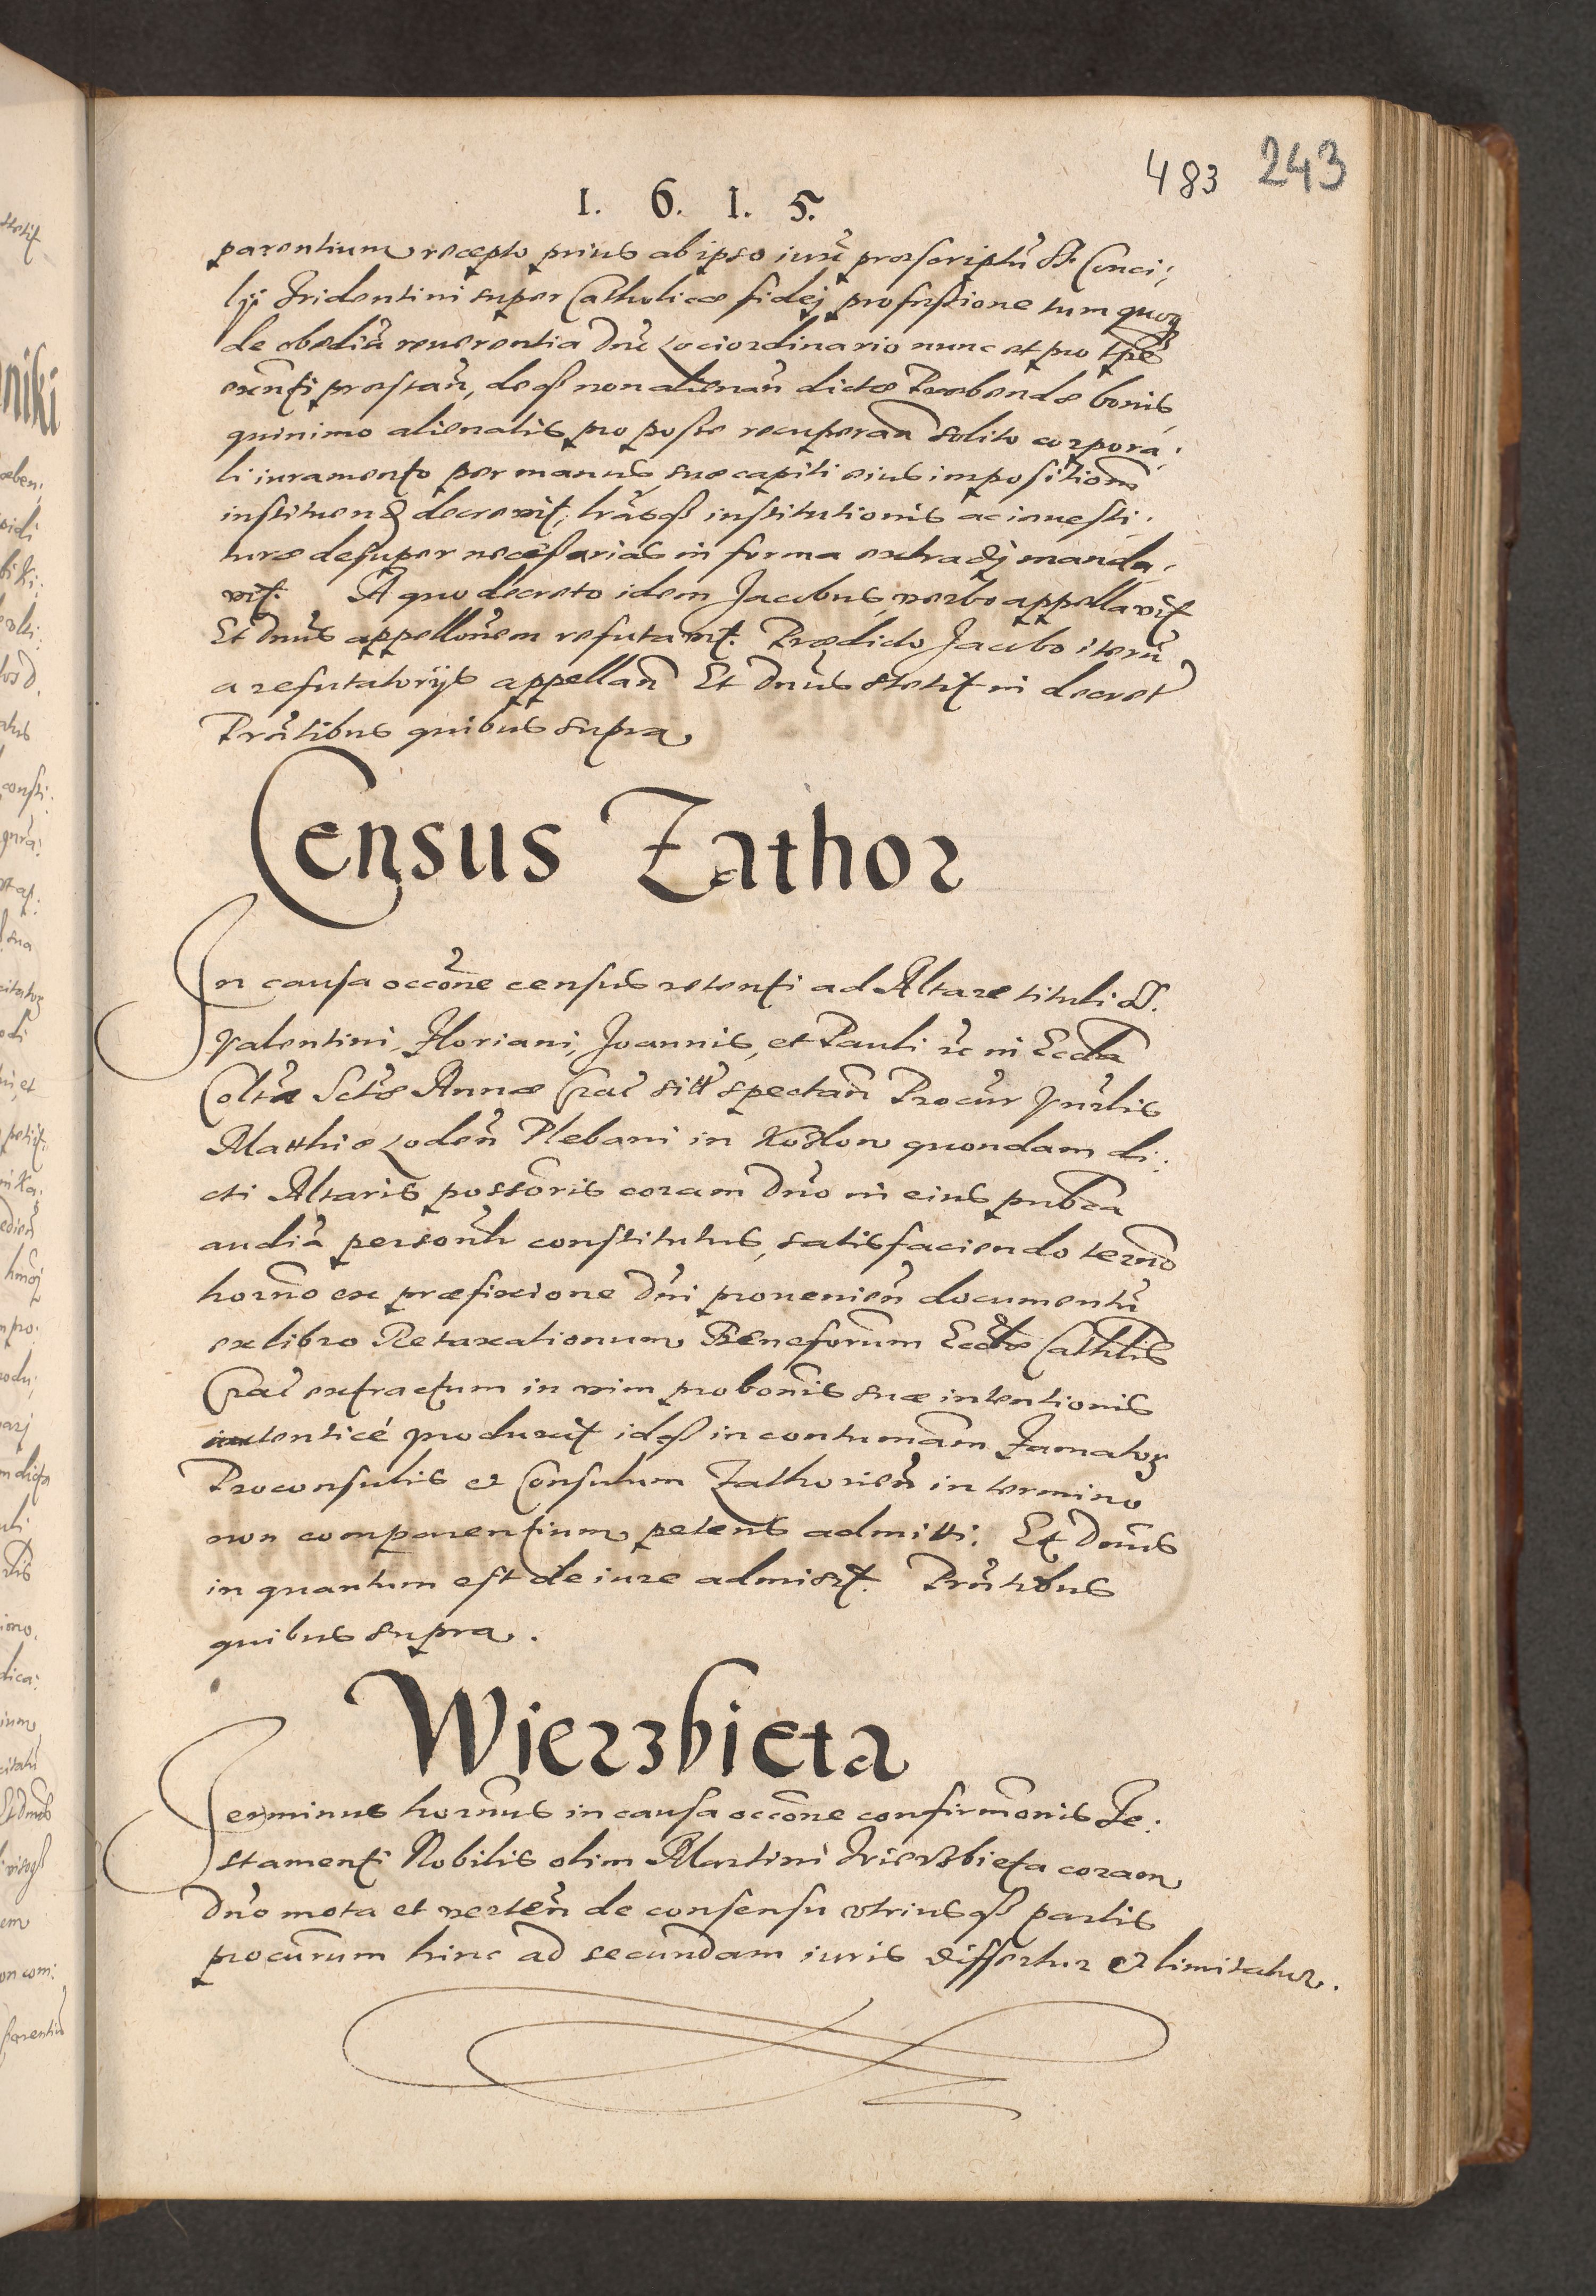 483 243
1. 6. 1. 5.
parentium recepto prius ab ipso iuxta præscriptũ S. Conci:
lÿ Tridentini super Catholicæ fidej professione tum quoq
de obediã reuerentia Dnĩs Lociordinario nunc et pro tpẽ
exñti præstañ, deqß non alienañ dictæ Præbendæ bonis
quinimo alienatis pro posse recuperañ solito corpora:
li iuramento per manus suæ capiti eius impositionẽ
instituend decrevit, lrãsqß institutionis ac inuesti:
turæ desuper necessarias in forma extradj manda:
vit. A quo decreto idem Jacobus verbo appellavit
Et Dnũs appellõnem refutavit. Prædicto Jacobo iterũ
a refutatorÿs appellañ Et Dnũs stetit in decret
Prñtibus quibus supra
Census Zathor
In causa occõne census retenti ad Altare tituli SS.
Valentini, Floriani, Joannis, et Pauli &c in Eccla
Coltã Sctæ Annæ Crac sitt spectañ Procur Vnrlis
Matthiæ Loden Plebani in Kozlow quondam di:
cti Altaris possõris coram Dnõ in eius pubca
audiã personlr constitutus, satisfaciendo termõ
hornõ ex præfixione Dñi prouenieñ documentũ
ex libro Retaxationum Beneforum Ecclæ Cathlis
Crac extractum in vim probonis suæ intentionis
autenticé produxit idqß in contumãm Famator
Proconsulis et Consulum Zathorieñ in termino
non comparentium petens admitti. Et Dnũs
in quantum est de iure admisit. Prñtibus
quibus supra.
Wierzbieta
Terminus hornũs in causa occõne confirmõnis Te:
stamenti Nobilis olim Martini Wierzbieta coram
Dnõ mota et verteñ de consensu vtriusqß partis
procurum hinc ad secundam iuris differtur et limitatur.